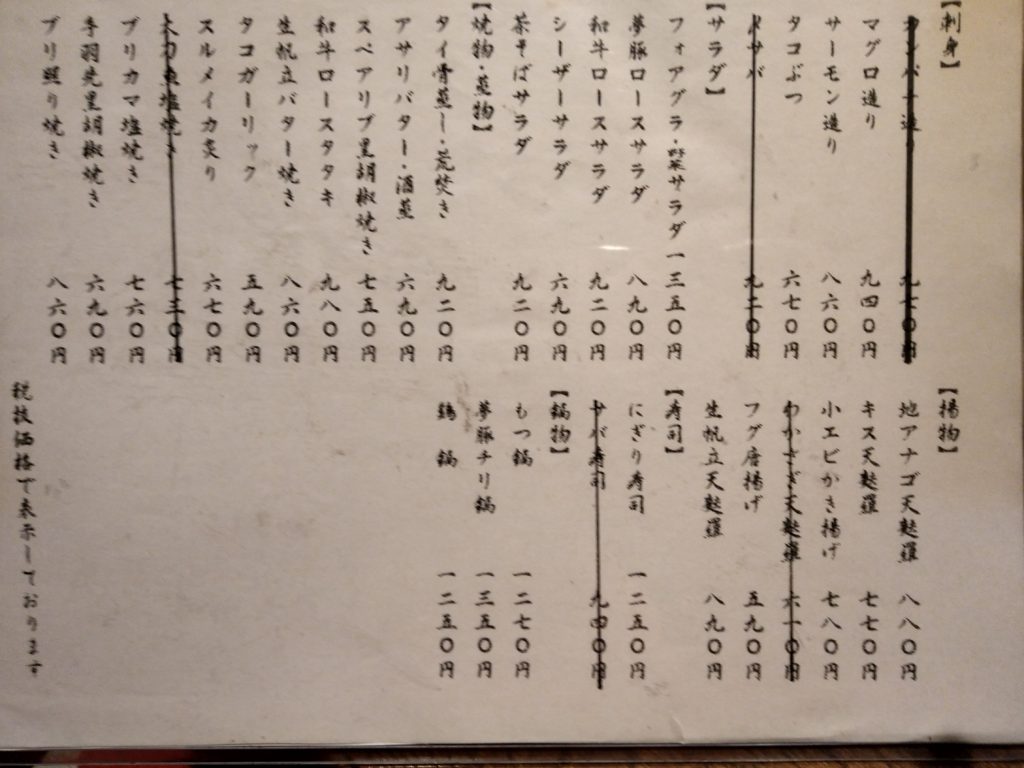 【刺身】
カンパチ造り 九七〇円
マグロ造り 九四〇円
サーモン造り 八六〇円
タコぶつ 六七〇円
〆サバ 九二〇円
【サラダ】
フォアグラ・野菜サラダ 一三五〇円
夢豚ロースサラダ 八九〇円
和牛ロースサラダ 九二〇円
シーザーサラダ 六九〇円
茶そばサラダ 九二〇円
【焼物・蒸物】
タイ骨蒸し・荒焚き 九二〇円
アサリバター・酒蒸 六九〇円
スペアリブ黒胡椒焼き 七五〇円
和牛ロースタタキ 九八〇円
生帆立バター焼き 八六〇円
タコガーリック 五九〇円
スルメイカ炙り 六七〇円
太刀魚塩焼き 七三〇円
ブリカマ塩焼き 七六〇円
手羽先黒胡椒焼き 六九〇円
ブリ照り焼き 八六〇円
【揚物】
地アナゴ天麩羅 八八〇円
キス天麩羅 七七〇円
小エビかき揚げ 七八〇円
わかさぎ天麩羅 六一〇円
フグ唐揚げ 五九〇円
生帆立天麩羅 八九〇円
【寿司】
にぎり寿司 一二五〇円
サバ寿司 九四〇円
【鍋物】
もつ鍋 一二七〇円
夢豚チリ鍋 一三五〇円
鶏鍋 一二五〇円
税抜価格で表示しております